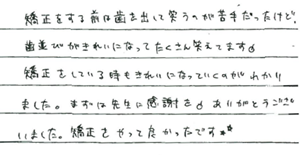 矯正をする前は歯を出して笑うのが苦手だったけど
歯並びがきれいになってたくさん笑えてます♪
矯正をしている時もきれいになっていくのがわかり
ました。まずは先生に感謝を♪ありがとうござ
いました。矯正をやって良かったです**